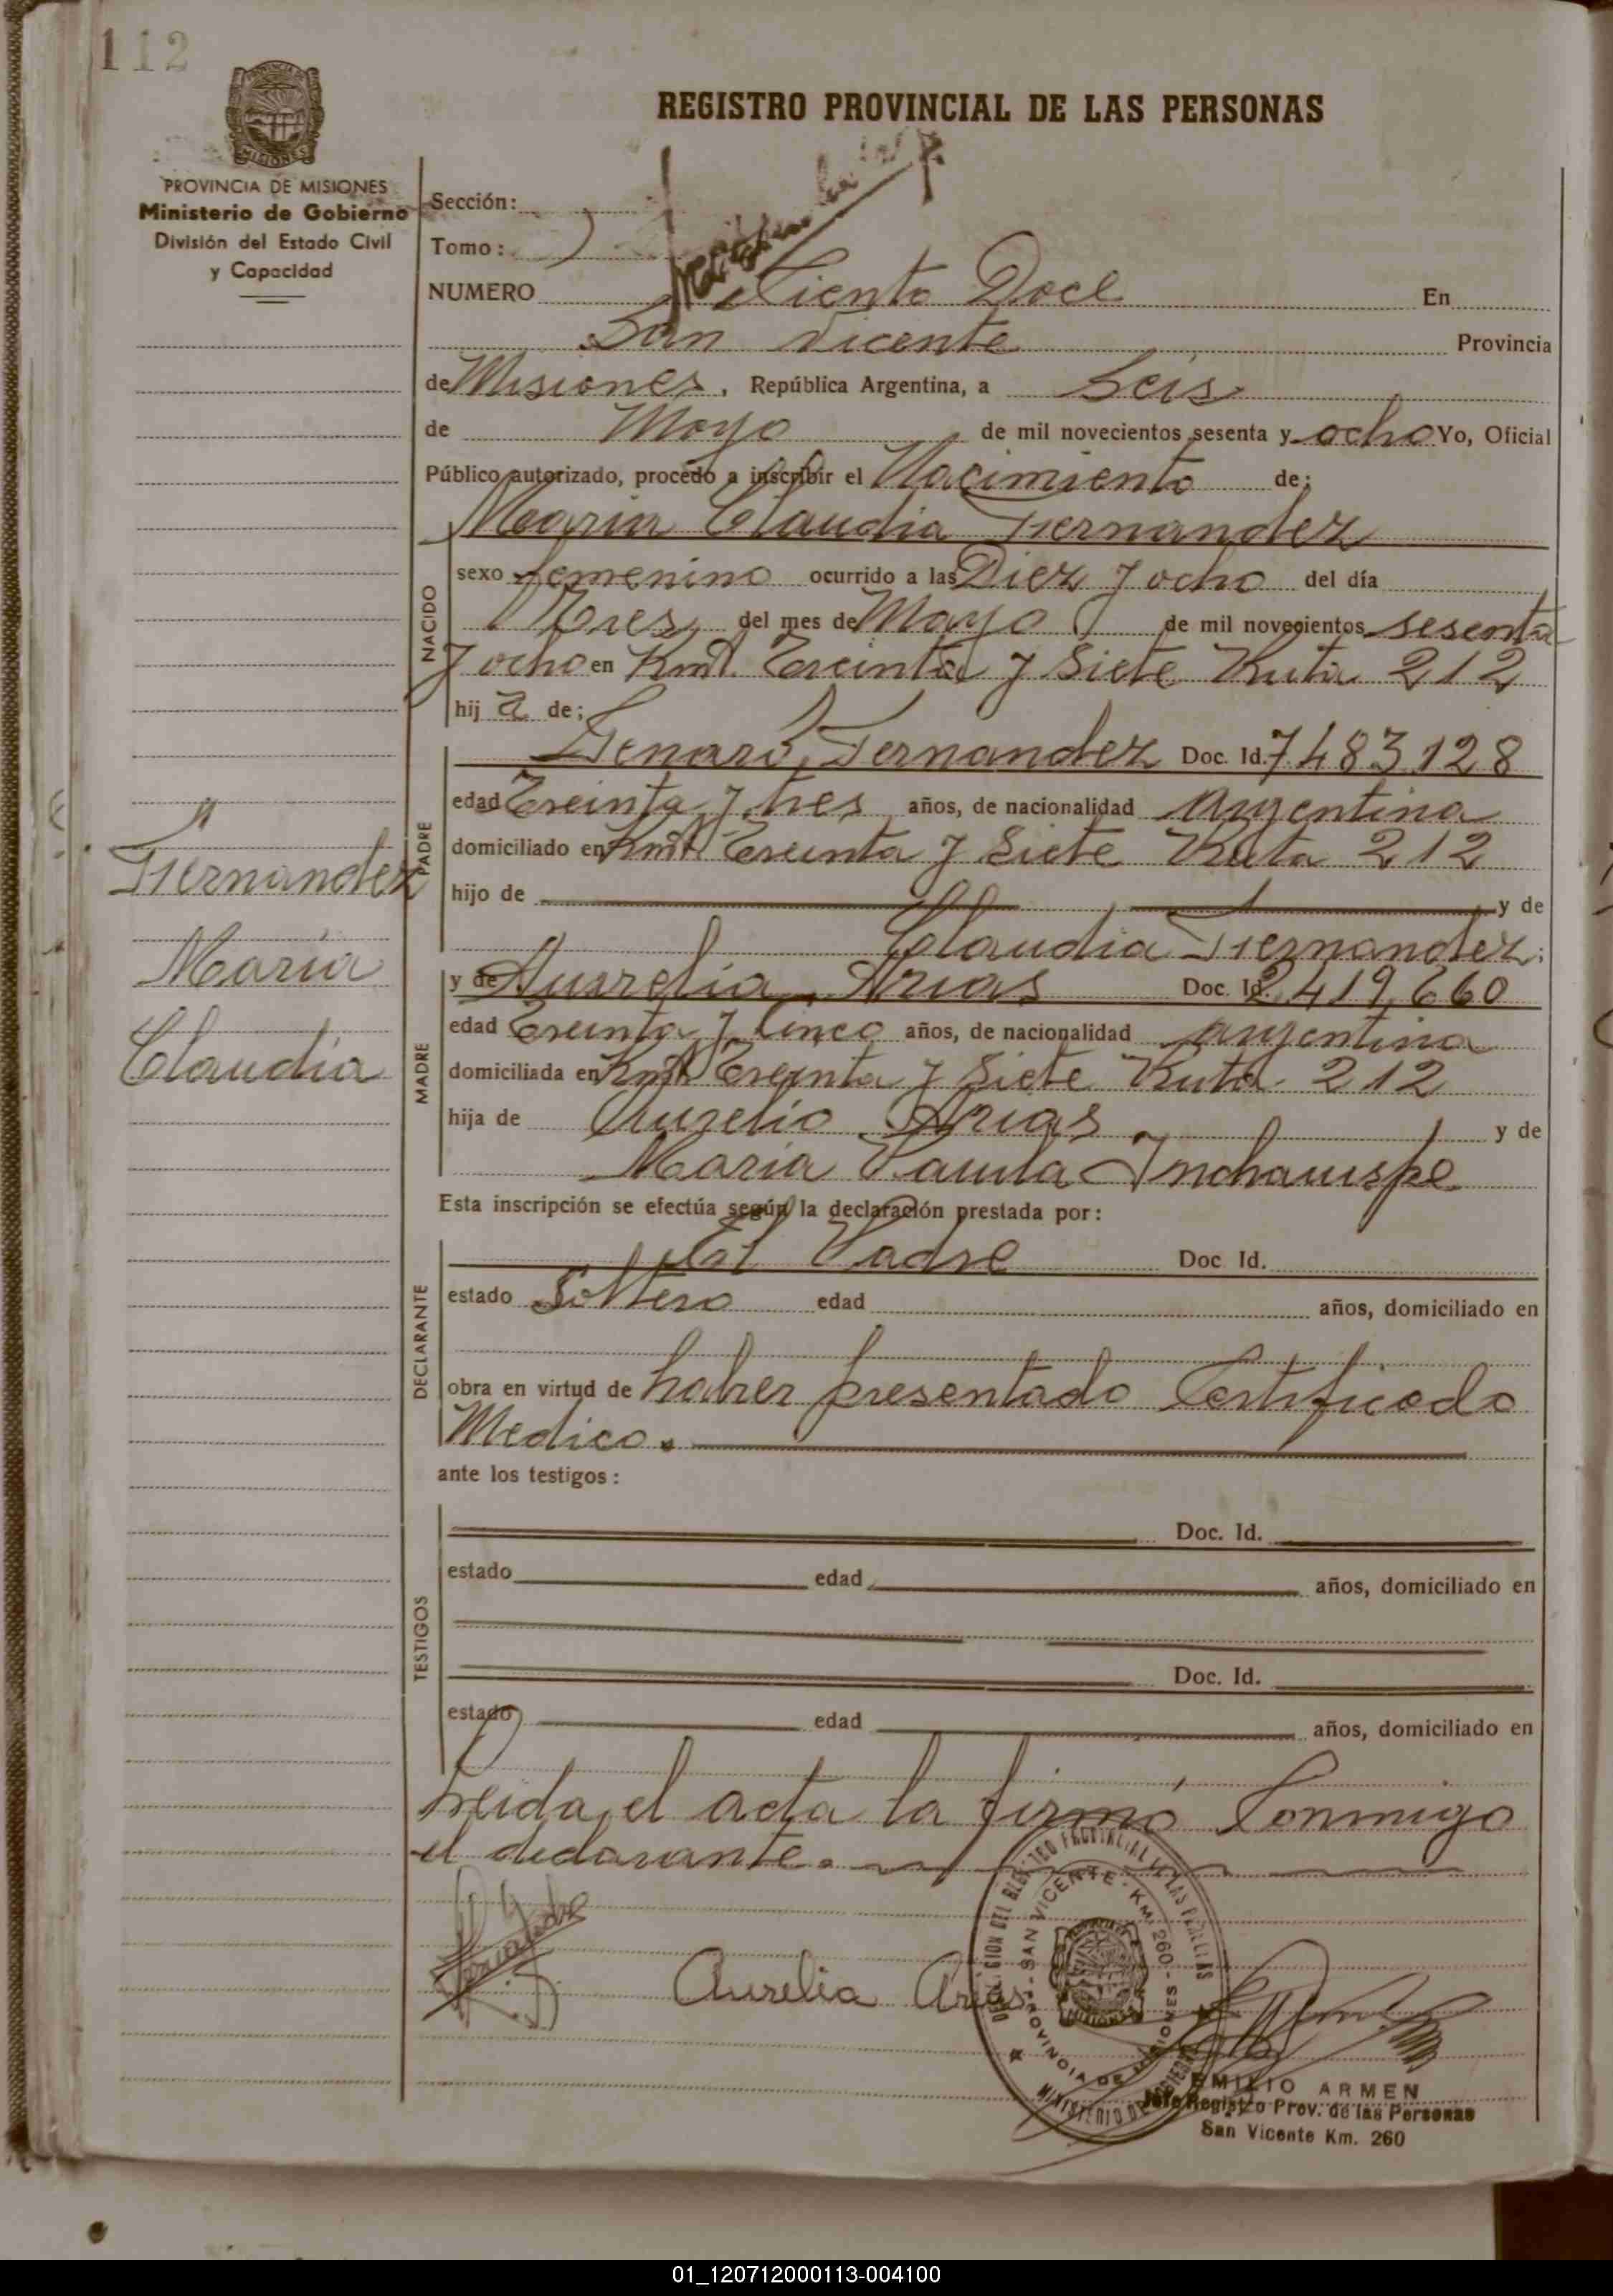 112
REGISTRO PROVINCIAL DE LAS PERSONAS
MISIONES
PROVINCIA DE MISIONES
Ministerio de Gobierno
División del Estado Civil
y Capacidad
Sección:
Tomo:
NUMERO Ciento Doce En
San Vicente Provincia
de Misiones, República Argentina, a Seis
de Mayo de mil novecientos sesenta y ocho Yo, Oficial
Público autorizado, procedo a inscribir el Nacimiento de:
Maria Claudia Fernandez
NACIDO
sexo femenino ocurrido a las Diez y ocho del día
Tres del mes de Mayo de mil novecientos sesenta
y ocho en Kmt. Treinta y Siete Ruta 212
hij a de;
PADRE
Genaro Fernandez Doc. Id. 7.483.128
edad Treinta y tres años, de nacionalidad argentina
domiciliado en Kmt. Treinta y Siete Ruta 212
hijo de y de
Claudia Fernandez;
Fernandez
Maria
Claudia
MADRE
y de Aurelia Arias Doc. Id. 2.419.660
edad Treinta y Cinco años, de nacionalidad argentina
domiciliada en Kmt. Treinta y Siete Ruta 212
hija de Aurelio Arias y de
Maria Paula Inchauspe
Esta inscripción se efectúa según la declaración prestada por:
DECLARANTE
El Padre Doc Id.
estado Soltero edad años, domiciliado en
obra en virtud de haber presentado Certificado
Medico.
ante los testigos:
TESTIGOS
Doc. Id.
estado edad años, domiciliado en
Doc. Id.
estado edad años, domiciliado en
Leida el acta la firmó Conmigo
el declarante.
Aurelia Arias
SAN VICENTE - KM. 260 - PROVINCIA DE MISIONES
MINISTERIO DE GOBIERNO
EMILIO ARMEN
Jefe Registro Prov. de las Personas
San Vicente Km. 260
01_120712000113-004100